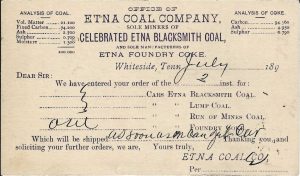 OFFICE OF
ANALYSIS OF COAL.
ETNA COAL COMPANY,
ANALYSIS OF COKE.
Vol. Matter
Fixed Carbon
Ash
Sulphur
Moisture
SOLE MINERS OF
CELEBRATED ETNA BLACKSMITH COAL,
AND SOLE MANUFACTURERS OF
ETNA FOUNDRY COKE.
Carbon
Ash
Sulphur
Whiteside, Tenn. July 189
DEAR SIR:
2
We have entered your order of the inst. for:
CARS ETNA BLACKSMITH COAL.
" LUMP COAL.
one " RUN OF MINES COAL
" FOUNDRY
Which will be shipped as soon as we can get Car Thanking you, and
soliciting your further orders, we are, Yours truly,
ETNA COAL CO.
Per